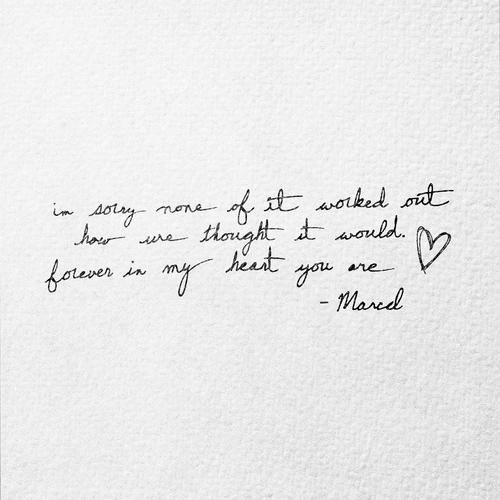 im sorry none of it worked out
how we thought it would.
forever in my heart you are
- Marcel